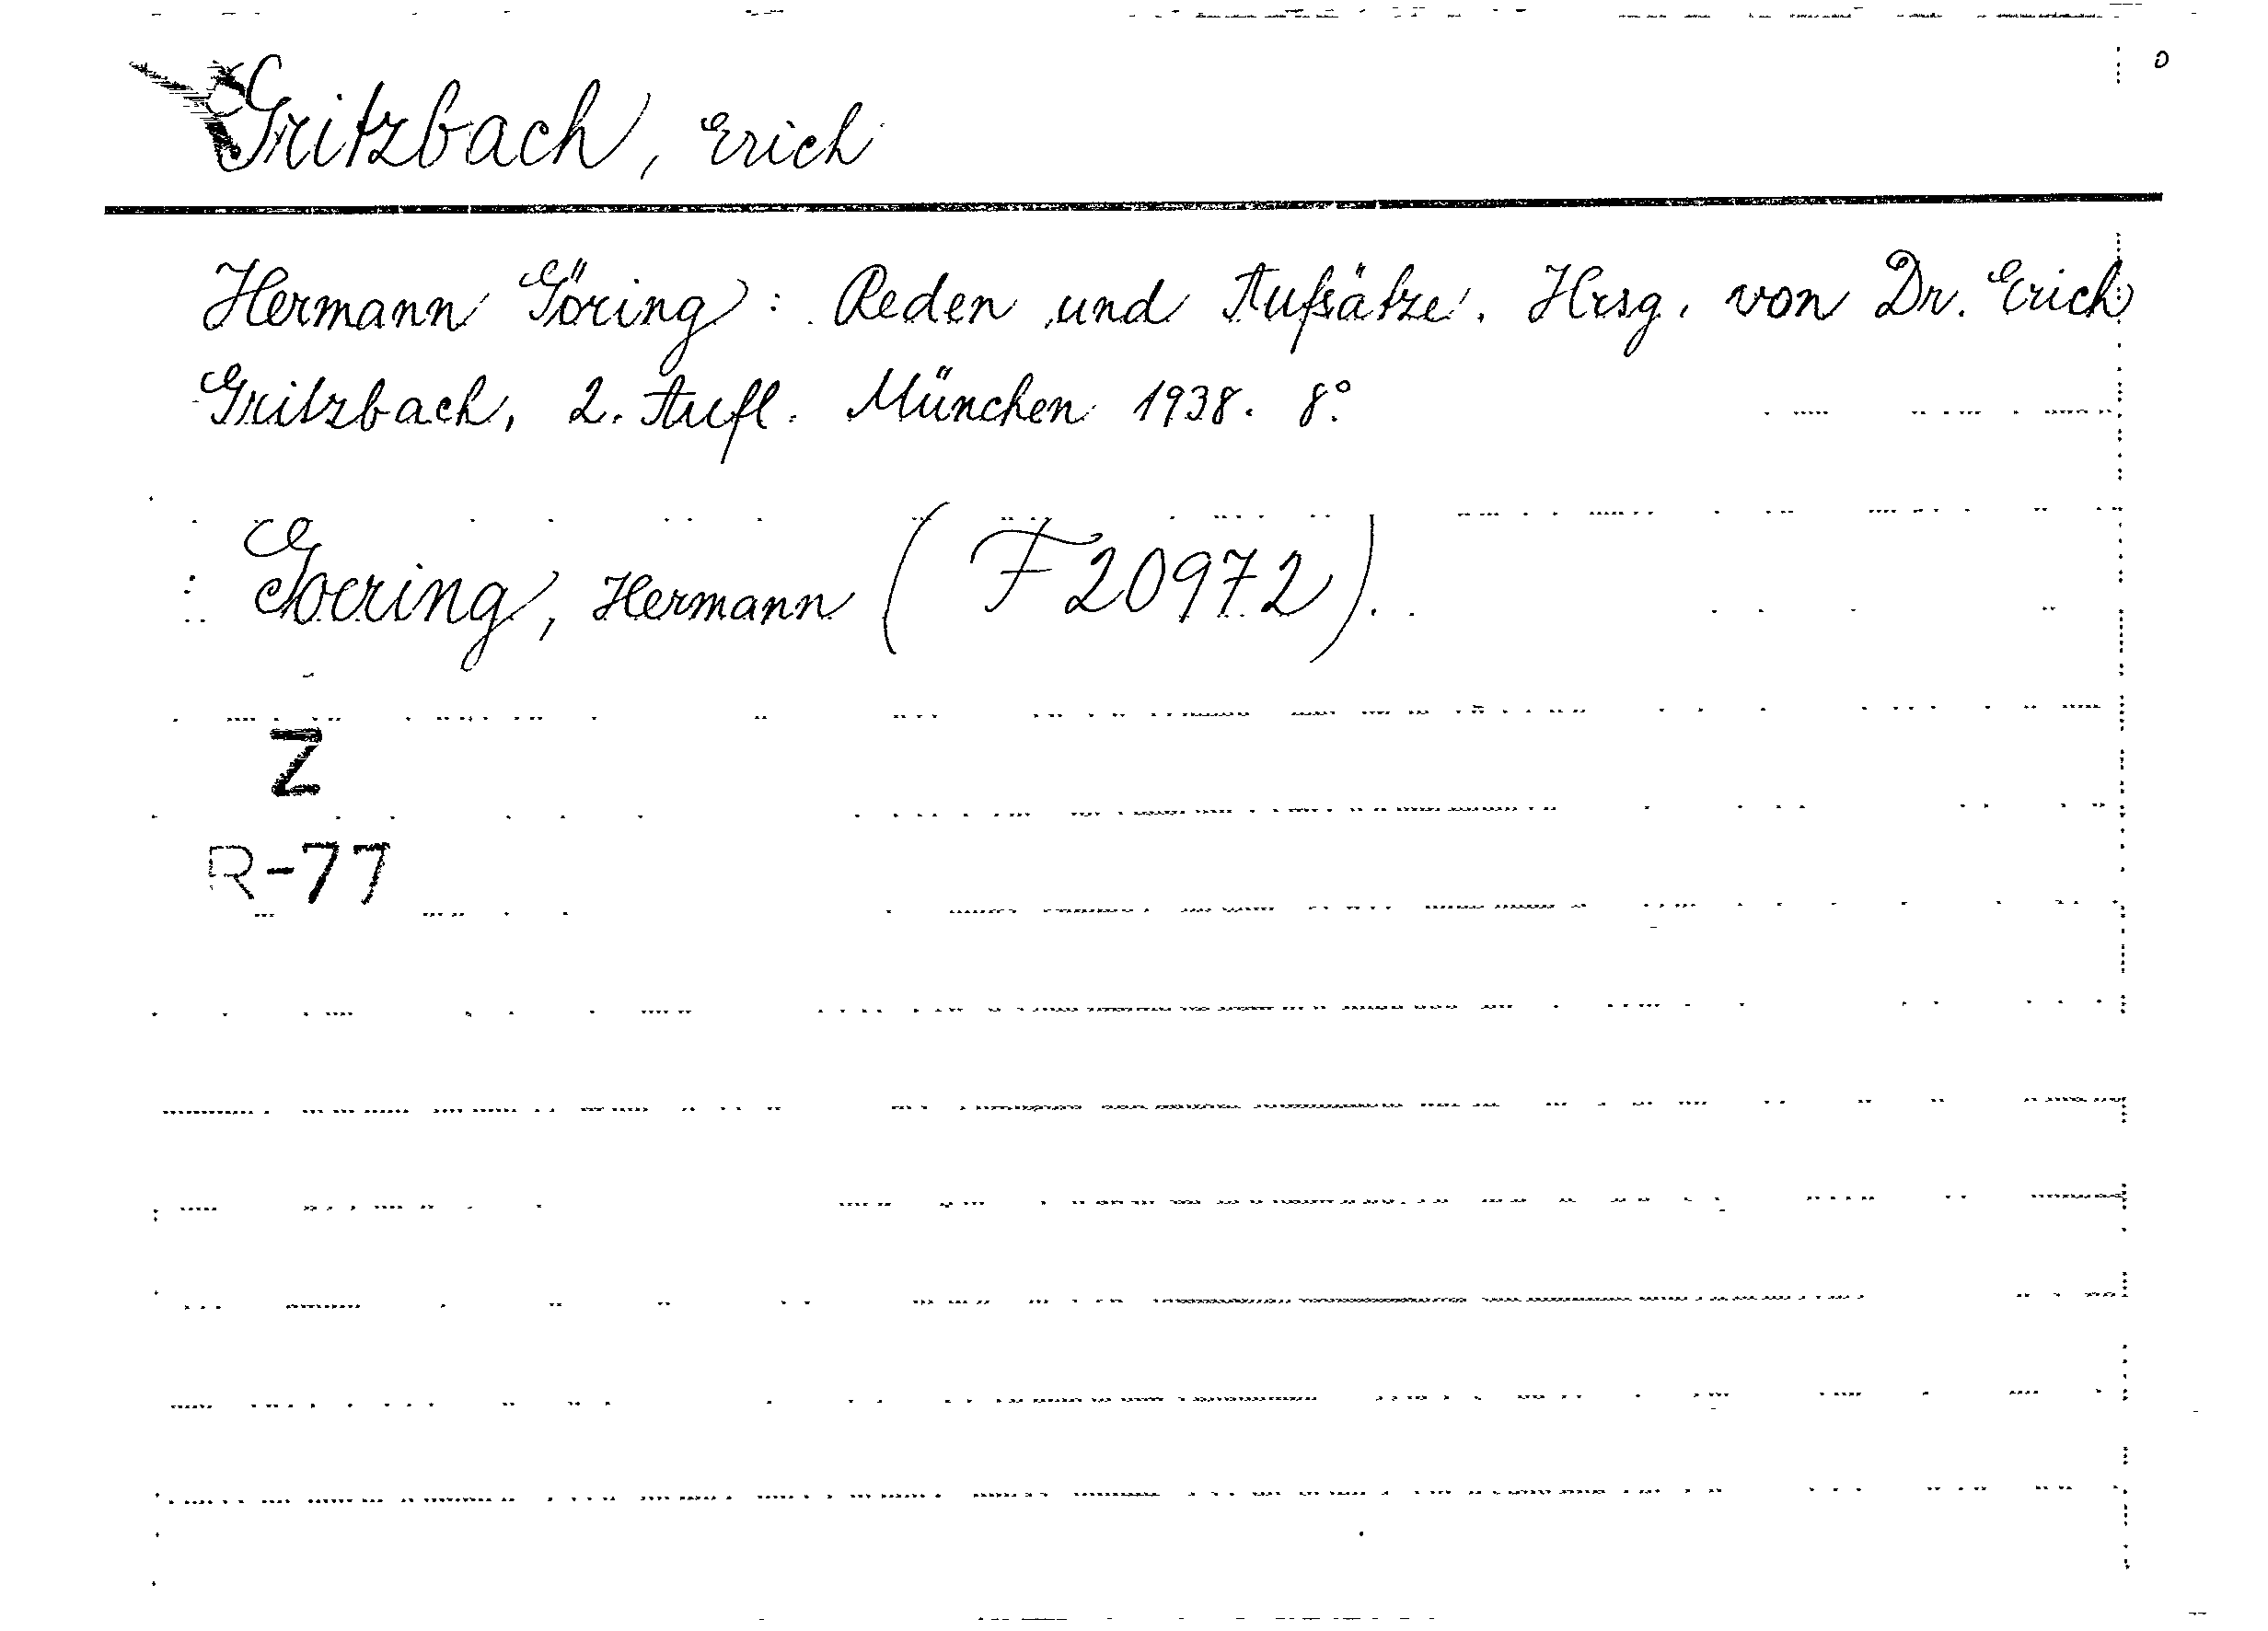 Gritzbach, Erich
Hermann Göring: Reden und Aufsätze. Hrsg. von Dr. Erich
Gritzbach, 2. Aufl. München 1938. 8°.
Goering, Hermann (F 20972).
Z
R-77